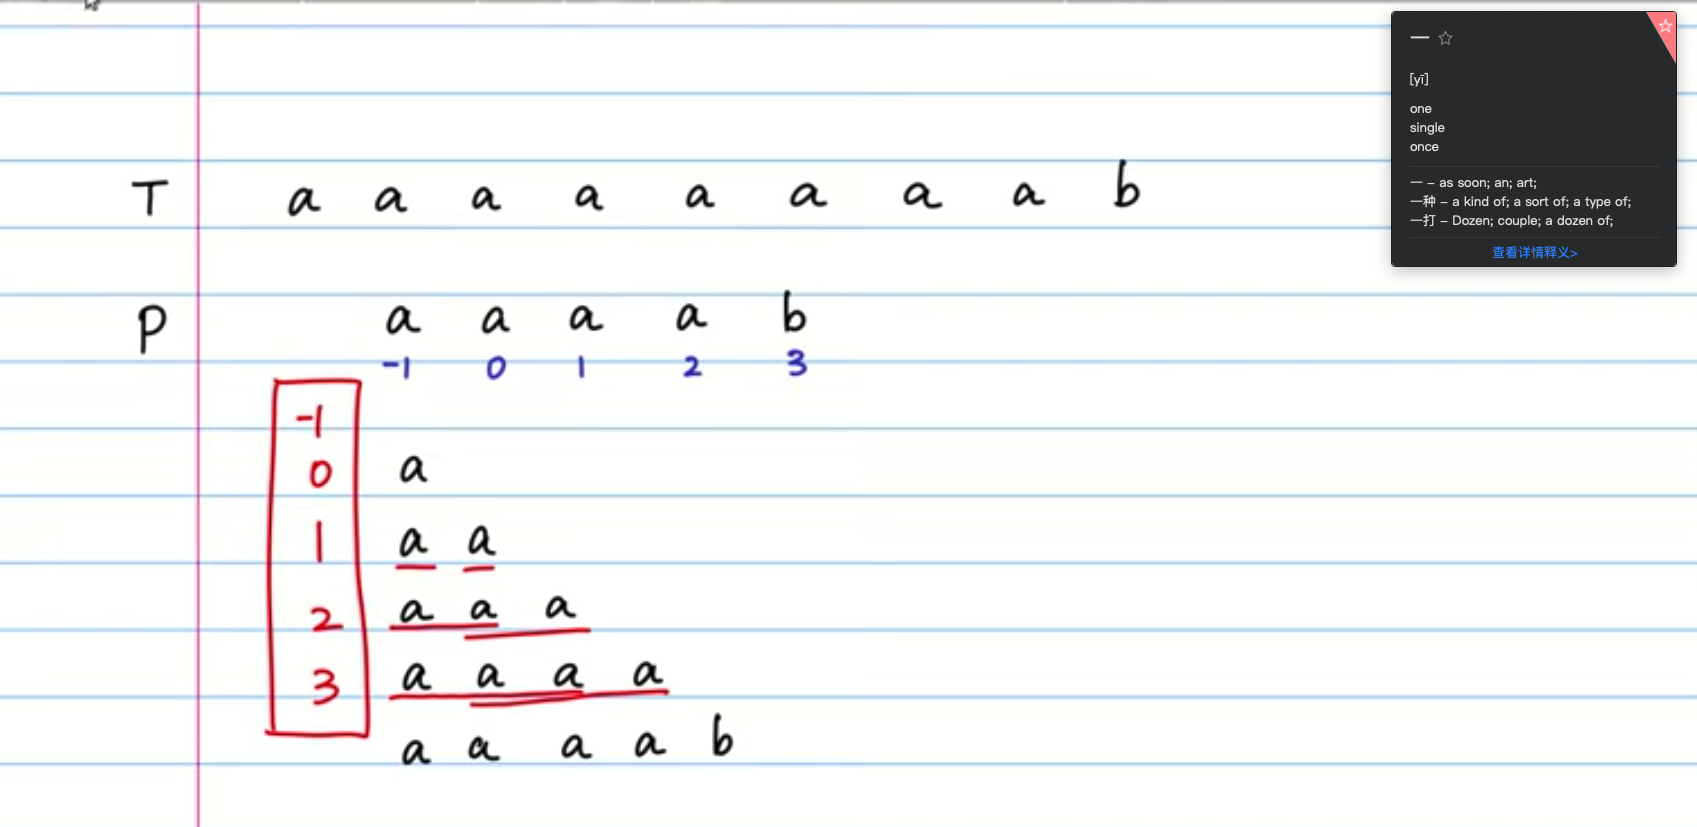 T a a a a a a a a b
P a a a a b
-1 0 1 2 3
-1
0 a
1 a a
2 a a a
3 a a a a
a a a a b
一 ☆
☆
[yī]
one
single
once
一 – as soon; an; art;
一种 – a kind of; a sort of; a type of;
一打 – Dozen; couple; a dozen of;
查看详情释义>